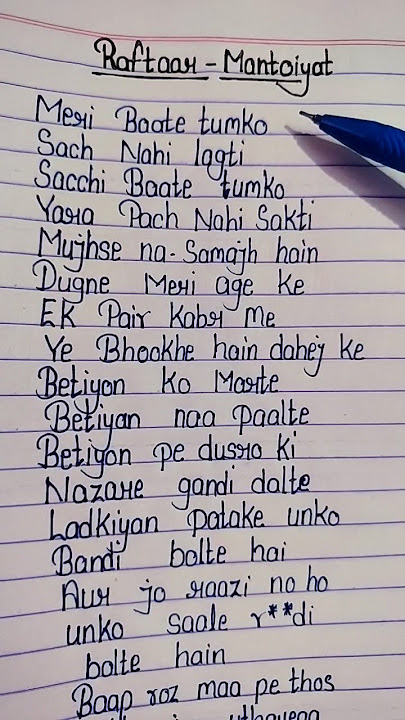 Raftaar - Mantoiyat
Meri Baate tumko
Sach Nahi lagti
Sacchi Baate tumko
Yara Pach Nahi Sakti
Mujhse na-Samajh hain
Dugne Meri age ke
EK Pair Kabr me
Ye Bhookhe hain dahej ke
Betiyon ko Marte
Betiyan naa paalte
Betiyon pe dusro ki
Nazare gandi dalte
Ladkiyan patake unko
Bandi bolte hai
Aur jo raazi no ho
unko saale r**di
bolte hain
Baap roz maa pe thos
uthayega